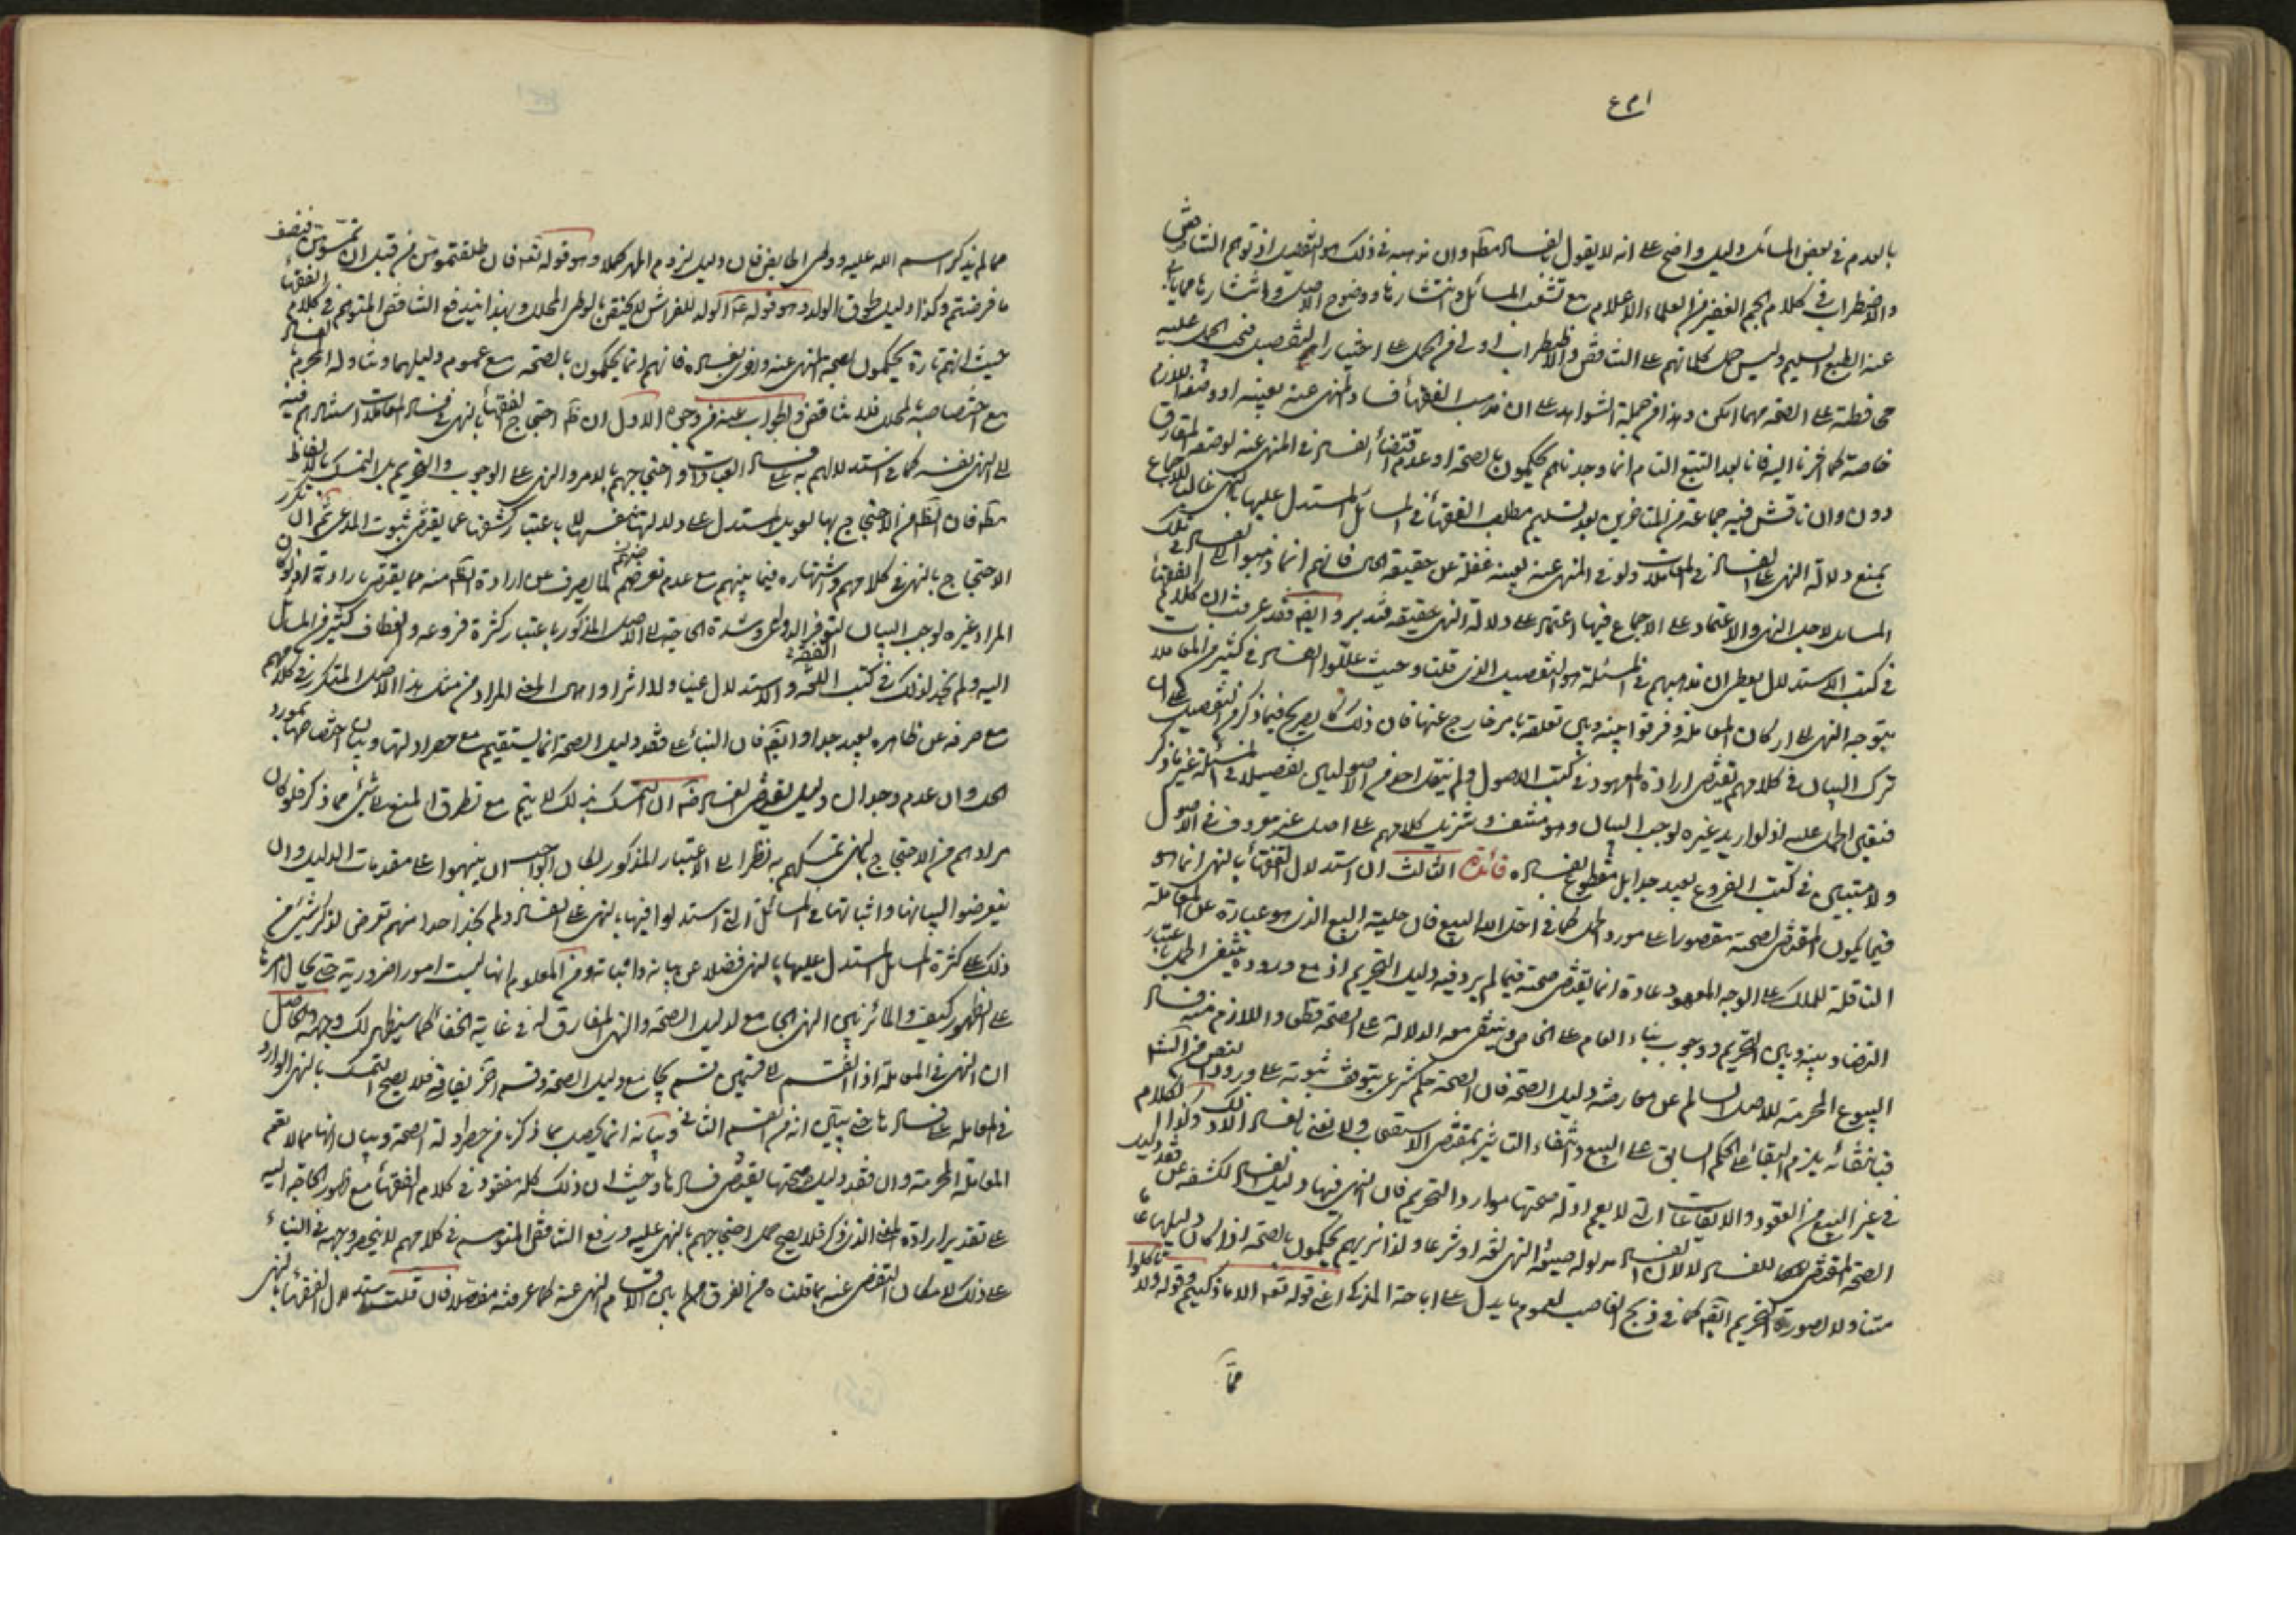 ١٣٤
بالعدم في بعض المسائل دليل واضح على انه لا يقول بالفساد مطلقا وان مذهبه في ذلك هو التفصيل اذ توهم التناقض
والاضطراب في كلام الجم الغفير من العلماء الاعلام مع تشعب المسائل وانتشارها ووضوح الاصل واشتهارها مما يأباه
عنه الطبع السليم وليس حمل كلماتهم على التناقض والاضطراب اولى من الحمل على اختيارهم التفصيل فيجب الحمل عليه
محافظة على الصحة مهما امكن وهذا من جملة الشواهد على ان مذهب الفقهاء فساد المنهي عنه بعينه او وصفه اللازم
خاصة كما اخرنا اليه فانا بعد التتبع التام انما وجدناهم يحكمون بالصحة او عدم اقتضاء الفساد في المنهي عنه لوصفه المفارق
دون وان ناقش فيه جماعة من المتاخرين بعد تسليم مطلب الفقهاء في المسائل المستدل عليها بالنهي غالبا للاجماع
بمنع دلالة النهي على الفساد في المعاملات ولو في المنهي عنه لعينه غفلة عن حقيقة الحال فانهم انما ذهبوا الى الفساد في تلك
المسائل لاجل النهي والاعتماد على الاجماع فيها اعتماد على دلالة النهي حقيقة فتدبر وايضا فقد عرفت ان كلام الفقهاء
في كتب الاستدلال يعطي ان مذهبهم في المسئلة هو التفصيل الذي قلنا وحيث عللوا الفساد في كثير من المعاملات
بتوجه النهي الى اركان المعاملة وفرقوا بينه وبين تعلقه بامر خارج عنها فان ذلك كالصريح فيما ذكر من التفصيل على ان
ترك البيان في كلامهم يقتضي ارادة المعهود في كتب الاصول ولم ينقل احد من الاصوليين تفصيلا في المسئلة غير ما ذكر
فتعين الحمل عليه اذ لو اريد غيره لوجب البيان وهو منتف وتنزيل كلامهم على اصل غير معروف في الاصول
ولا مبتنى في كتب الفروع بعيد جدا بل مقطوع بفساده فائدة الثالث ان استدلال الفقهاء بالنهي انما هو
فيما يكون المقتضي لصحته مقصورا على مورد الحل كما في احل الله البيع فان حلية البيع الذي هو عبارة عن المعاملة
الناقلة للملك على الوجه المعهود عادة انما يقتضي صحته فيما لم يرد فيه دليل التحريم اذ مع وروده ينتفي الحل باعتبار
التضاد بينه وبين التحريم ووجوب بناء العام على الخاص وينتفي معه الدلالة على الصحة قطعا واللازم منه فساد
البيوع المحرمة للاصل السالم عن معارضة دليل الصحة فان الصحة حكم شرعي يتوقف ثبوته على ورود النص من الشرع
فبانتفائه يلزم البقاء على الحكم السابق على البيع وانتفاء التاثير بمقتضى الاستصحاب ولا نعني بالفساد الا ذلك وكذا الكلام
في غير البيع من العقود والايقاعات التي لا يعم ادلة صحتها موارد التحريم فان النهي فيها دليل الفساد لكشفه عن فقد دليل
الصحة المقتضي للفساد لا لان الفساد مدلوله صيغة النهي لغة او شرعا ولذا تريهم يحكمون بالصحة اذا كان دليلها عاما
متناولا لصورة التحريم ايضا كما في ذبح الغاصب لعموم ما يدل على اباحة المذكى اعني قوله تعالى الا ما ذكيتم وقوله ولا تاكلوا
مما
مما لم يذكر اسم الله عليه ووطى الحايض فان دليل لزوم المهر كملا وهو قوله تعالى فان طلقتموهن من قبل ان تمسوهن فنصف
ما فرضتم وكذا دليل لحوق الولد وهو قوله الولد للفراش لا يختص بالوطي المحلل وبهذا يندفع التناقض المتوهم في كلام الفقهاء
حيث انهم تارة يحكمون بصحة المنهي عنه واخرى بفساده فانهم انما يحكمون بالصحة مع عموم دليلها وتناوله المحرم
مع اختصاصه بالمحلل فلا تناقض والجواب عنه من وجوه الاول ان ظاهر احتجاج الفقهاء بالنهي في فساد المعاملات استنادهم فيه
الى النهي نفسه كما في استدلالهم به على فساد العبادات واحتجاجهم بالامر والنهي على الوجوب والتحريم بل التمسك بالالفاظ
مطلقا فان الظاهر من الاحتجاج بها تعويل المستدل على دلالتها بنفسها لا باعتبار كشفها عما يقتضي ثبوت المدعى ثم ان تكرر
الاحتجاج بالنهي في كلامهم واشتهاره فيما بينهم مع عدم تعرضهم لما يصرف عن ارادة الظاهر منه مما يقتضي بارادته اذ لو كان
المراد غيره لوجب البيان لتوفر الدواعي وشدة الحاجة الى الاصل المذكور باعتبار كثرة فروعه وانعطاف كثير من المسائل
اليه ولم نجد لذلك في كتب الفقه والاستدلال عينا ولا اثرا واهمال المعنى المراد من مثل هذا الاصل المتكرر في كلامهم
مع صرفه عن ظاهره بعيد جدا وايضا فان البناء على فقد دليل الصحة انما يستقيم مع حصر ادلتها وبيان اختصاصها بمورد
الحل وان عدم وجدان دليل يقتضي الفساد ان التمسك بذلك لا يتم مع تطرق المنع الى شئ مما ذكر فلو كان
مرادهم من الاحتجاج بالنهي تمسكهم به نظرا الى الاعتبار المذكور لكان الواجب ان ينبهوا على مقدمات الدليل وان
يتعرضوا لبيانها واثباتها في المسائل التي استدلوا فيها بالنهي على الفساد ولم نجد احدا منهم تعرض لذكر شئ من
ذلك على كثرة المسائل المستدل عليها بالنهي فضلا عن بيانه واثباته ومن المعلوم انها ليست امورا ضرورية حتى يحال امرها
على الظهور كيف والمائز بين النهي الجامع لدليل الصحة والنهي المفارق له في غاية الخفاء كما سيظهر لك وجهه والحاصل
ان النهي في المعاملة اذا انقسم الى قسمين قسم يجامع دليل الصحة وقسم اخر يفارقه فلا يصح التمسك بالنهي الوارد
في المعاملة على فسادها حتى يتبين انه من القسم الثاني وبيانه انما يحصل بما ذكر من حصر ادلة الصحة وبيان انها مما لا تعم
المعاملة المحرمة وان فقد دليل صحتها يقتضي فسادها وحيث ان ذلك كله مفقود في كلام الفقهاء مع ظهور الحاجة اليه
على تقدير ارادة المعنى الذي ذكر فلا يصح حمل احتجاجهم بالنهي عليه ورفع التناقض المتوهم في كلامهم لا ينحصر وجهه في البناء
على ذلك لامكان التفصي عنه بما قلناه من الفرق بين اقسام المنهي عنه كما عرفته مفصلا فان قلت استدلال الفقهاء بالنهي